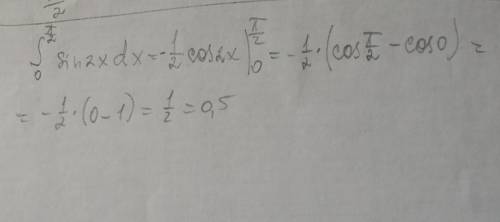 π/2
∫₀^(π/2) sin2xdx = -1/2 cos2x |₀^(π/2) = -1/2 · (cos π/2 - cos0) =
= -1/2 · (0-1) = 1/2 = 0,5